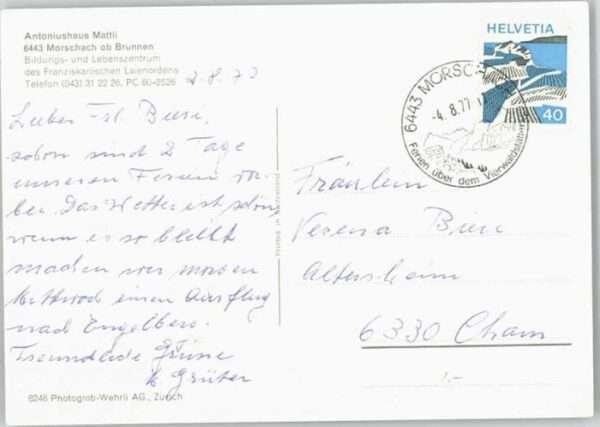 Antoniushaus Mattli
6443 Morschach ob Brunnen
Bildungs- und Lebenszentrum
des Franziskanischen Laienordens
Telefon (043) 31 22 26, PC 60-2526
HELVETIA
40
6443 MORSCH
-4.8.77
Ferien über dem Vierwaldstätter
2.8.77
Lieber Frl. Bieri,
schon sind 2 Tage
unseren Ferien vor
bei. Das Wetter ist schön
wenn es so bleibt
machen wir morgen
Mittwoch einen Ausflug
nach Engelberg.
Freundliche Grüsse
Gruber
Fräulein
Verena Bieri
Altersheim
6330 Cham
Printed in Switzerland
8246 Photogrob-Wehrli AG., Zürich